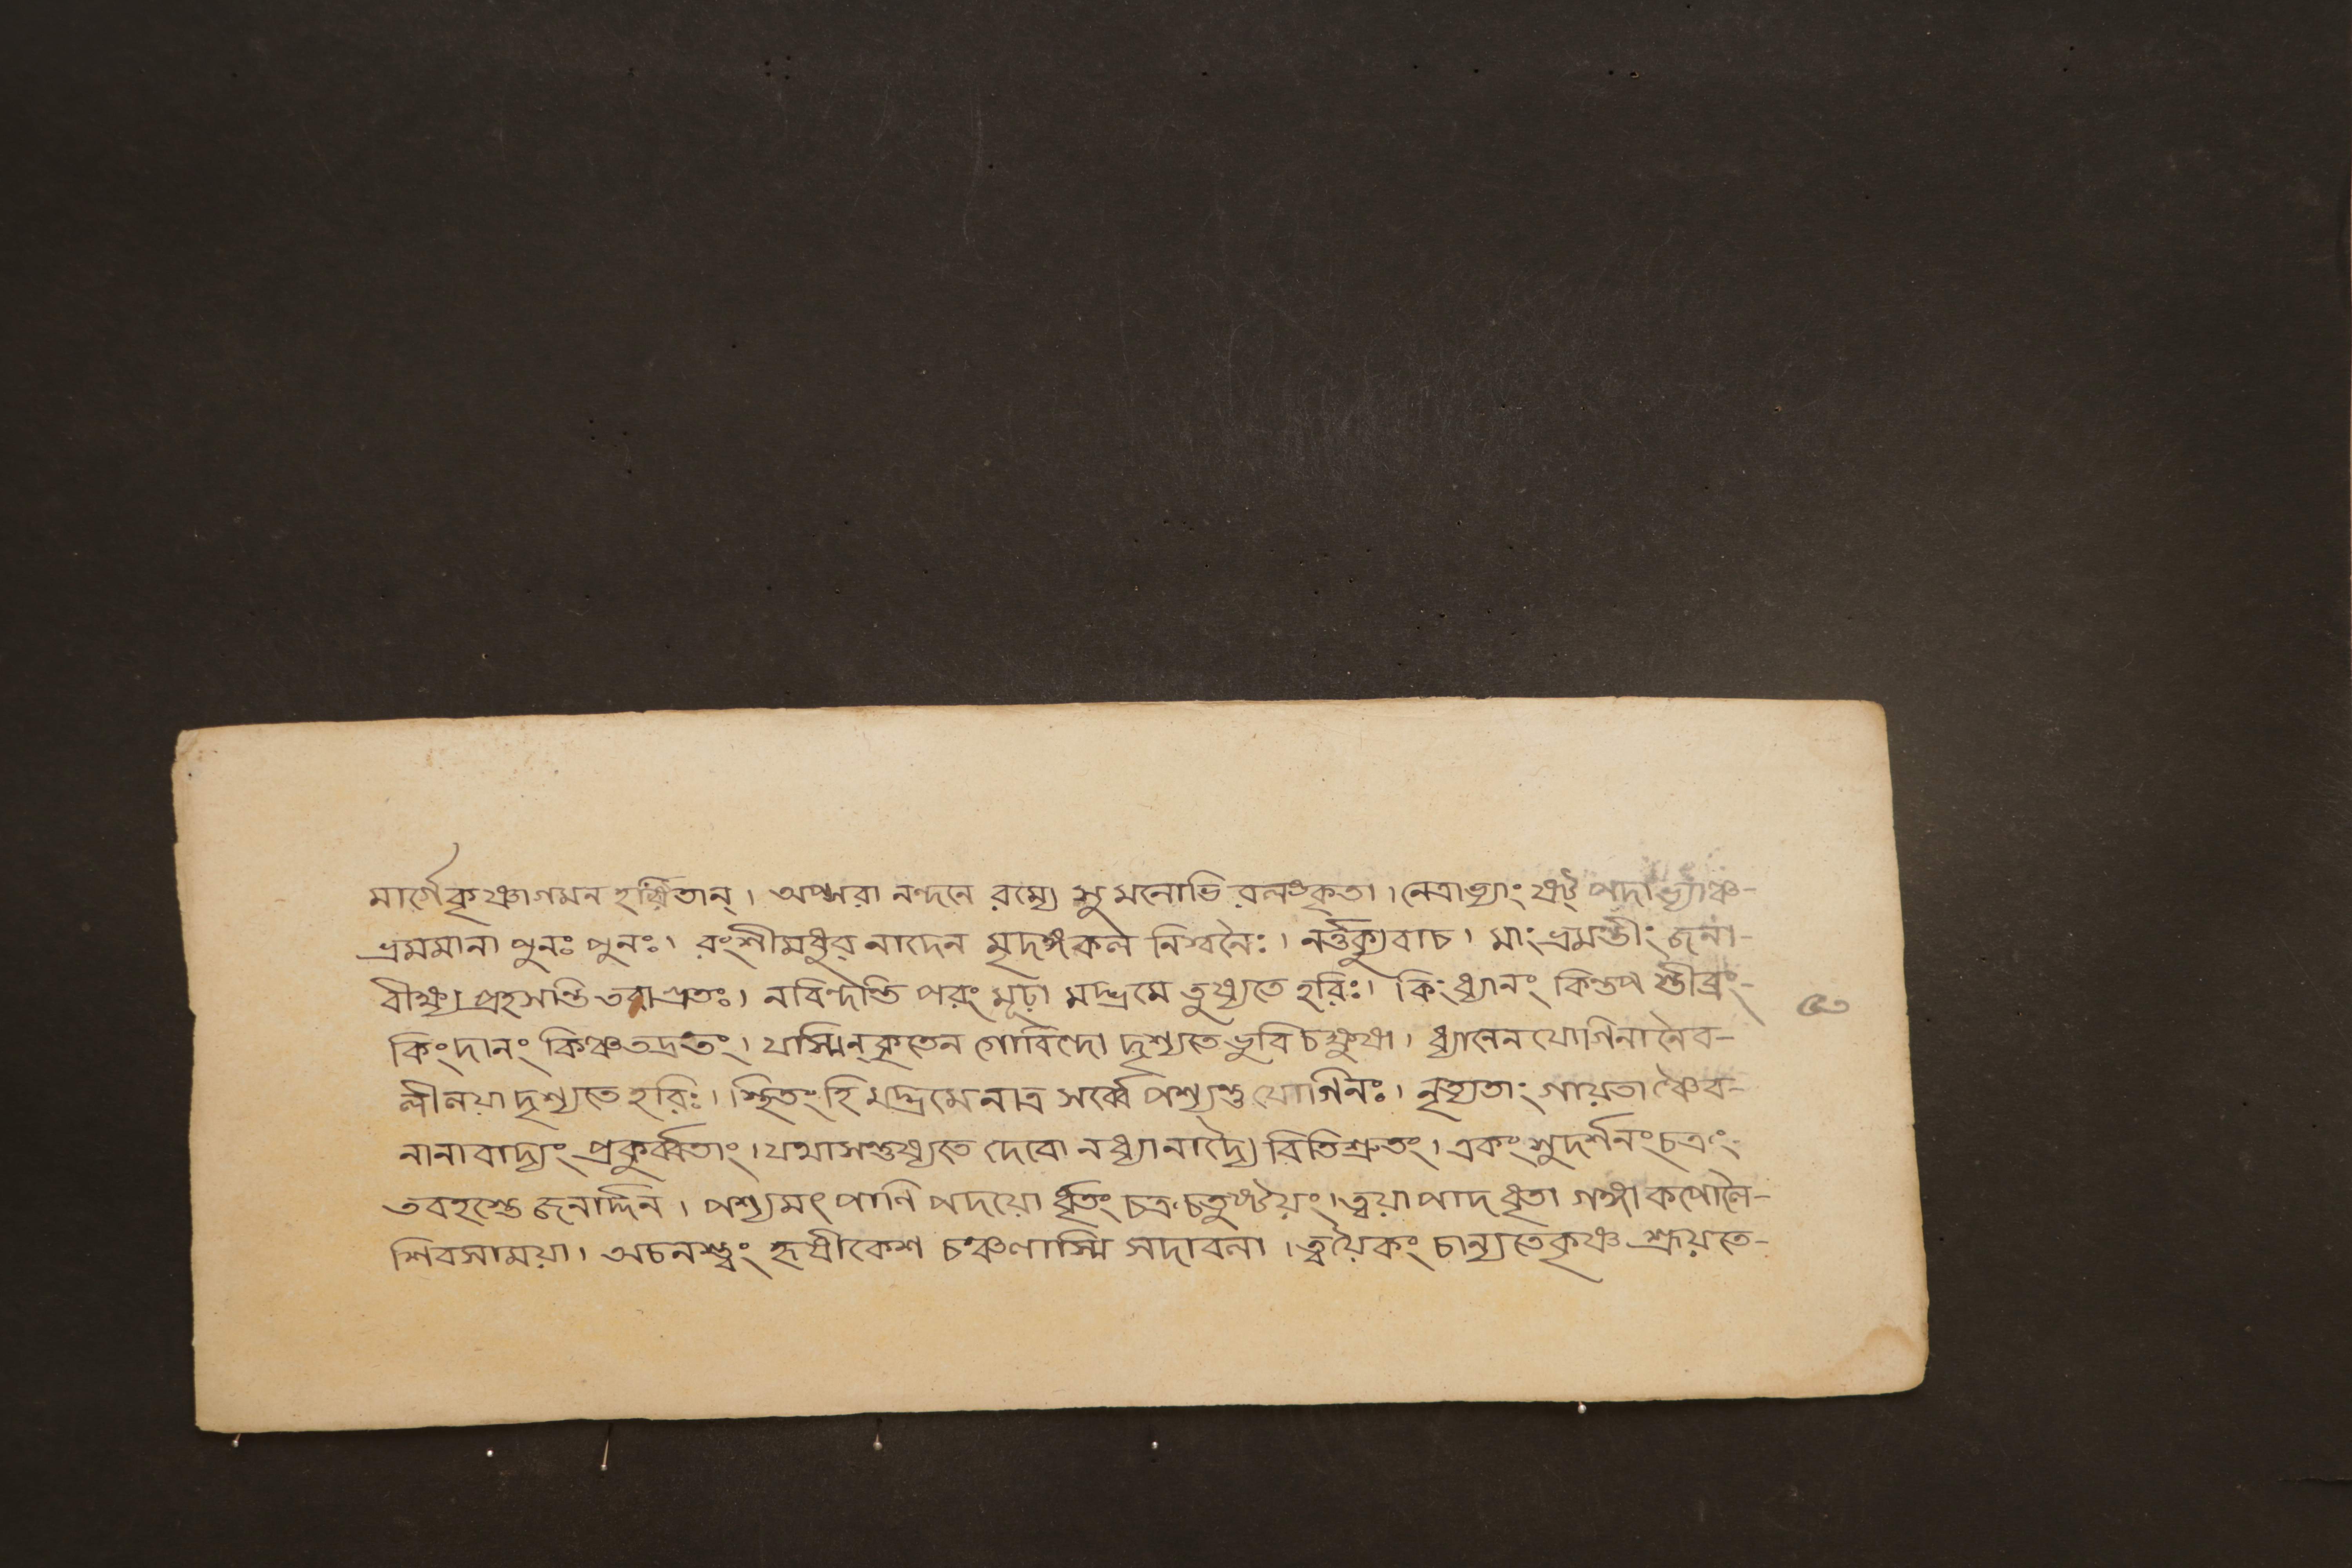 মার্গে কৃষ্ণাগমন হর্ষিতান্। অপ্সরা নন্দনে রম্যে সুমনোভি রলঙ্কৃতা। নেত্রাভ্যাং ষট্ পদাভ্যাঞ্চ-
ভ্রমমানা পুনঃ পুনঃ। বংশীমধুর নাদেন মৃদঙ্গকল নিশ্বনৈঃ। নর্ত্তক্যুবাচ। মাং ভ্রমন্তীং জনা-
বীক্ষ্য প্রহসন্তি তবাগ্রতঃ। নবিন্দন্তি পরং মূঢ়া মদ্ভ্রমে তুষ্যতে হরিঃ। কিং ধ্যানং কিন্তপ স্তীব্রং-
৩
কিংদানং কিঞ্চতদ্ব্রতং। যস্মিন্ কৃতেন গোবিন্দো দৃশ্যতে ভুবি চক্ষুষা। ধ্যানেন যোগিনা নৈব-
লীলয়া দৃশ্যতে হরিঃ। স্থিতং হি মদ্ভ্রমে নাত্র সর্ব্বে পশ্যন্তু যোগিনঃ। নৃত্যতাং গায়তা ঞ্চৈব-
নানা বাদ্যং প্রকুর্ব্বতাং। যথা সন্তুষ্যতে দেবো ন ধ্যানাদ্যৈ রিতিশ্রুতং। একং সুদর্শনং চক্রং
তবহস্তে জনার্দ্দন। পশ্যমৎ পাণি পদয়ো র্ধৃতং চক্র চতুষ্টয়ং। ত্বয়া পাদ ধৃতা গঙ্গা কপোলৈ-
শিবসাময়া। অচলস্ত্বং হৃষীকেশ চঞ্চলাস্মি সদাবলা। ত্বয়ৈকং চাল্যতে কৃষ্ণ শ্রূয়তে-